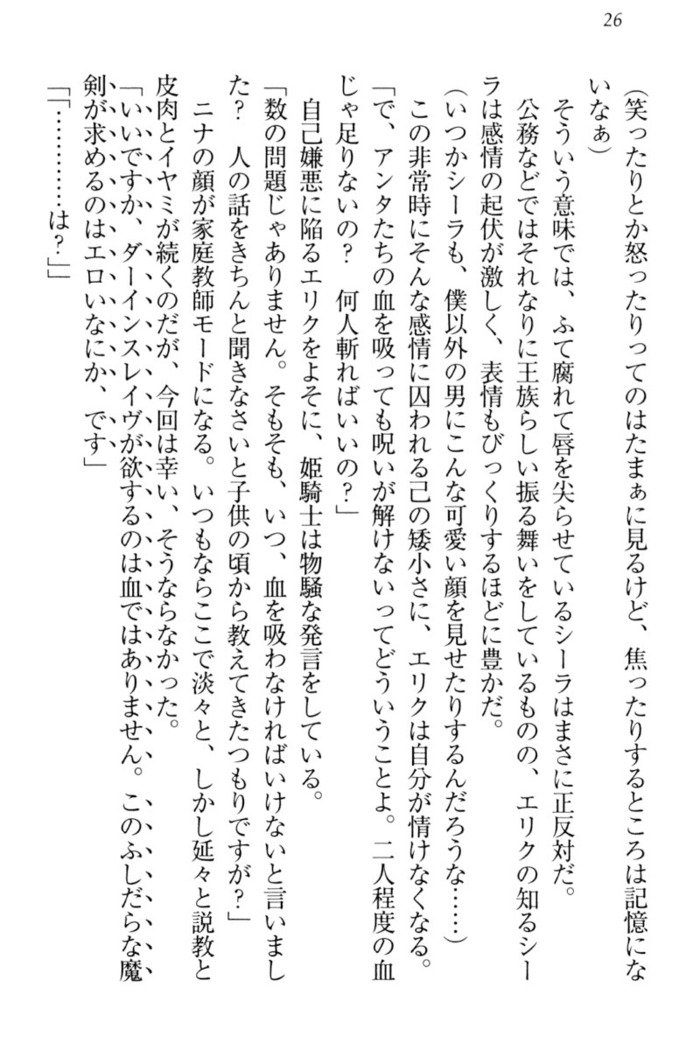 26
(笑ったりとか怒ったりってのはたまぁに見るけど、焦ったりするところは記憶にな
いなぁ)
そういう意味では、ふて腐れて唇を尖らせているシーラはまさに正反対だ。
公務などではそれなりに王族らしい振る舞いをしているものの、エリクの知るシー
ラは感情の起伏が激しく、表情もびっくりするほどに豊かだ。
(いつかシーラも、僕以外の男にこんな可愛い顔を見せたりするんだろうな……)
この非常時にそんな感情に囚われる己の矮小さに、エリクは自分が情けなくなる。
「で、アンタたちの血を吸っても呪いが解けないってどういうことよ。二人程度の血
じゃ足りないの? 何人斬ればいいの?」
自己嫌悪に陥るエリクをよそに、姫騎士は物騒な発言をしている。
「数の問題じゃありません。そもそも、いつ、血を吸わなければいけないと言いまし
た? 人の話をきちんと聞きなさいと子供の頃から教えてきたつもりですが?」
ニナの顔が家庭教師モードになる。いつもならここで淡々と、しかし延々と説教と
皮肉とイヤミが続くのだが、今回は幸い、そうならなかった。
「いいですか、ダーインスレイヴが欲するのは血ではありません。このふしだらな魔
剣が求めるのはエロいなにか、です」
「「…………は?」」